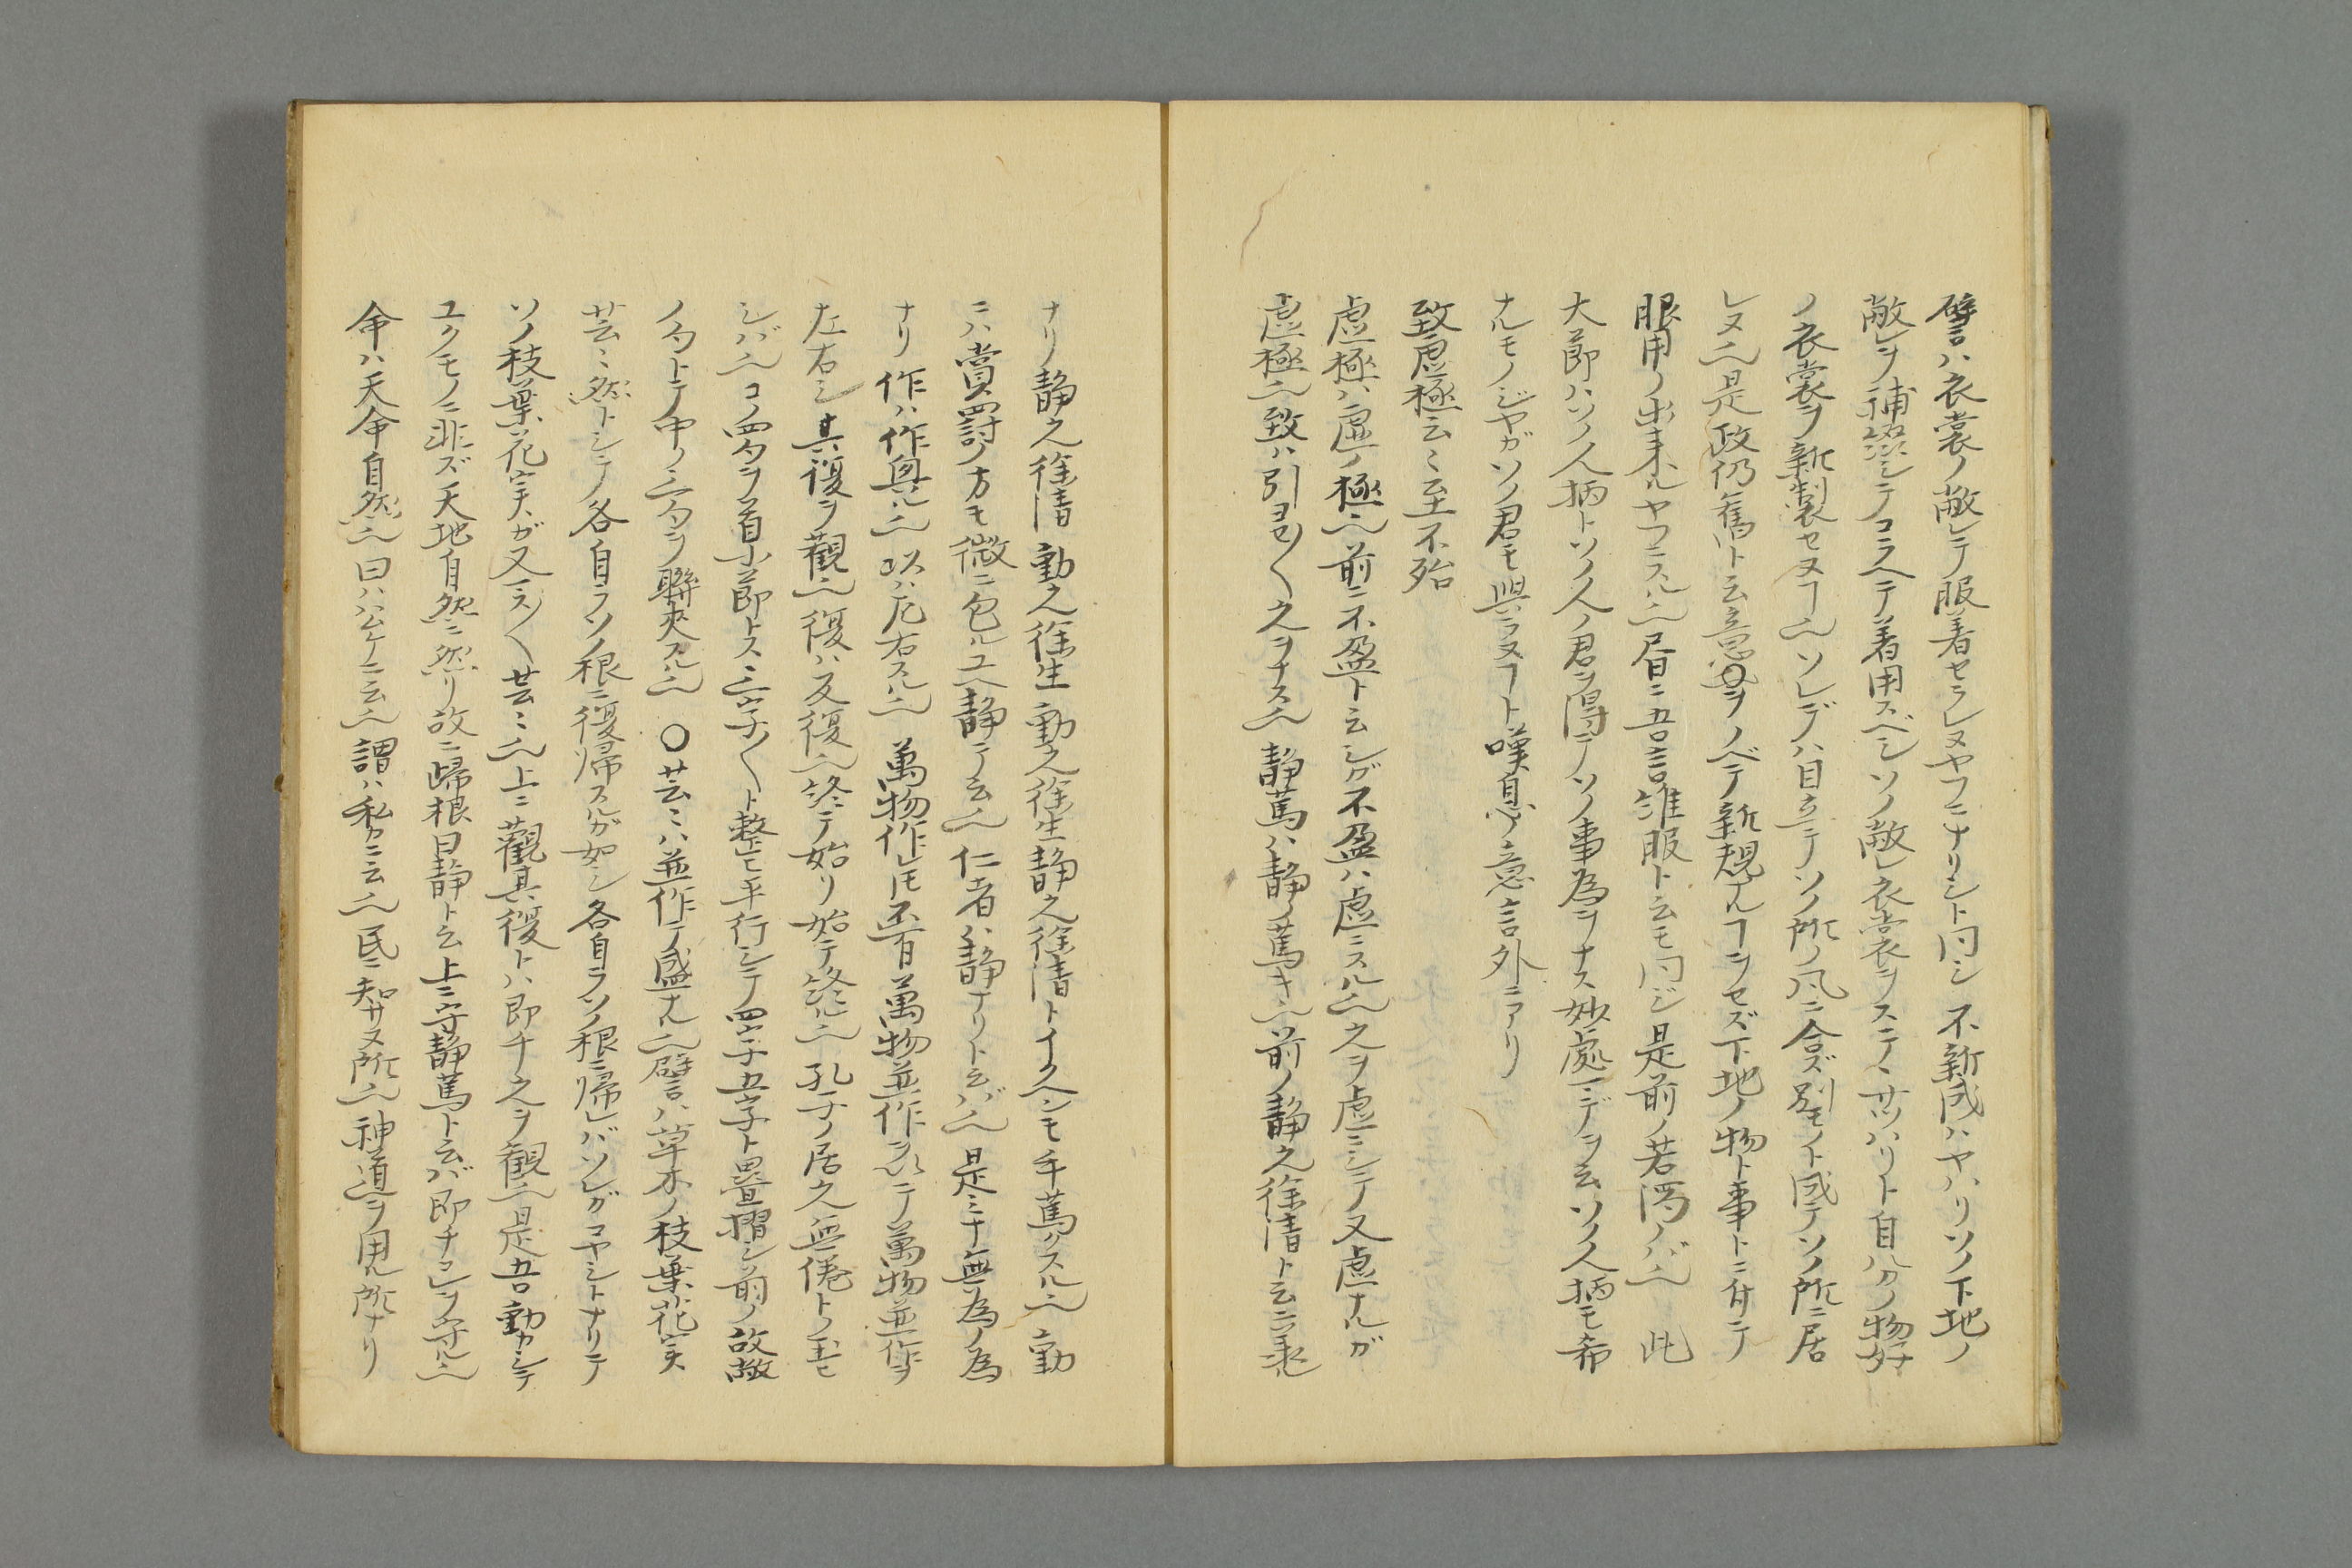 譬ハ衣裳ノ敝レテ服着セラレヌヤフニナリシト同シ 不新成ハヤハリソノ下地ノ
敝レヲ補綴シテコラヘテ着用スベシソノ敝レ衣裳ヲステヽサツハリト自分ノ物好
ノ衣裳ヲ新製セヌヿ也ソレデハ目立テソノ所ノ風ニ合ズ別モノト成テソノ所ニ居
レヌ也是政仍舊ト云意ヲノベテ新規ナルヿヲセズ下地ノ物ト事トニ付テ
服用ノ出来ルヤフニスル也 昼日ニ吾言誰服ト云モ同ジ是前ノ若濁ノバ也 此
大節ハソノ人柄トソノ人ノ君ヲ得テソノ事為ヲナス妙處マデヲ云ソノ人柄モ希
ナルモノジヤガソノ君モ與ラヌヿト嘆息ノ意言外ニアリ
致虚極云々至不殆
虚極ハ虚ノ極也前ニ不盈ト云シガ不盈ハ虚ニスル也之ヲ虚ニシテ又虚ナルガ
虚極也致ハ引ヨセ〱之ヲナス也 静篤ハ静ノ篤キ也前ノ静之徐清ト云ニ乗ル
ナリ静之徐清動之徐生動之徐生静之徐清トイクヘンモ手篤クスル也 動
ニハ賞罰ノ方モ微ニ包ルユヘ静テ云也 仁者ハ静ナリト云バ也 是ミナ無為ノ為
ナリ 作ハ作興ル也 以ハ左右スル也 萬物作レ𪜈不有萬物並作ヲ以テ萬物並作ヲ
左右シ 其復ヲ觀也 復ハ反復也終テ始リ始テ終ル也 孔子ノ居之無倦トノ玉モ
シバ也 コノ四句ヲ首小節トス三字〱ト整ヒ平行シテ四字五字ト畳摺シ前ノ故敝
ノ句トテ中ノ三句ヲ聯夾スル也 ○芸ミハ並作テ盛ナル也譬ハ草木ノ枝葉花実
芸ミ然トシテ各自ラソノ根ニ復帰スルガ如シ各自ラソノ根ニ帰レバソレガコヤシトナリテ
ソノ枝葉花実ガ又ミノ〱芸ミ也上ニ觀其復トハ即チ之ヲ観也是吾動カシテ
ユクモノニ非ズ天地自然ニ然リ故ニ歸根曰静ト云上ニ守静篤ト云バ即チコレヲ守ル也
命ハ天命自然也 曰ハ公ケニ云也 謂ハ私カニ云也 民ニ知サヌ所也 神道ヲ用ル所ナリ